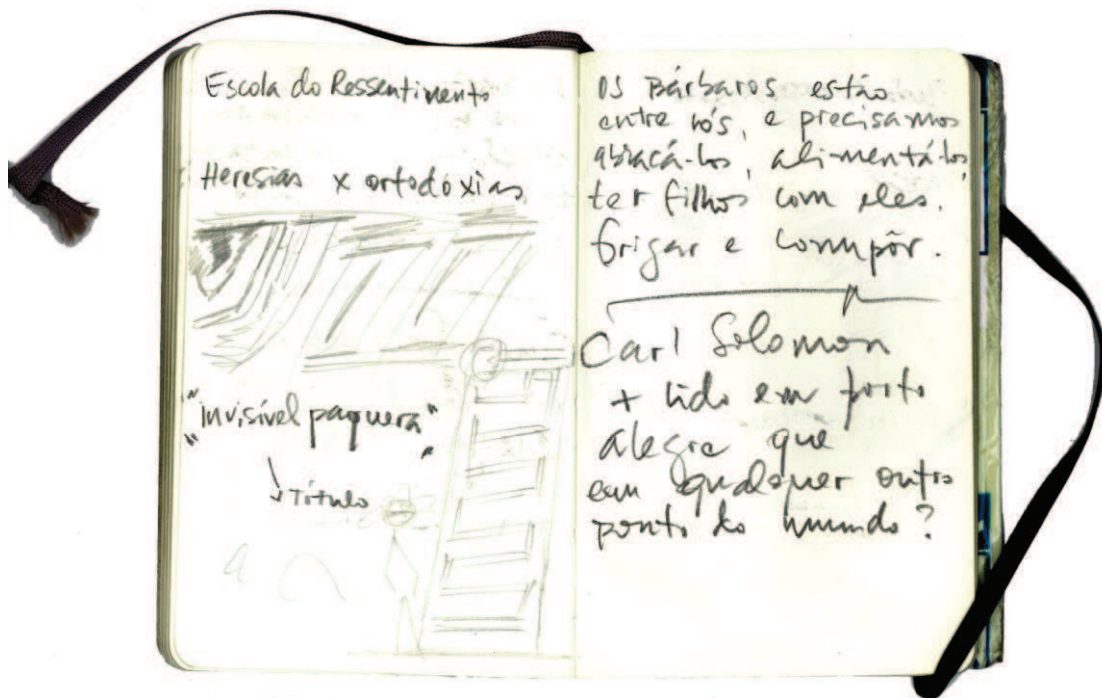 Escola do Ressentimento
Heresias x ortodoxias
"invisível paquera"
Título
Os Bárbaros estão
entre nós, e precisamos
abraçá-los, alimentá-los,
ter filhos com eles.
Brigar e compôr.
Carl Solomon
+ lido em porto
alegre que
em qualquer outro
ponto do mundo?